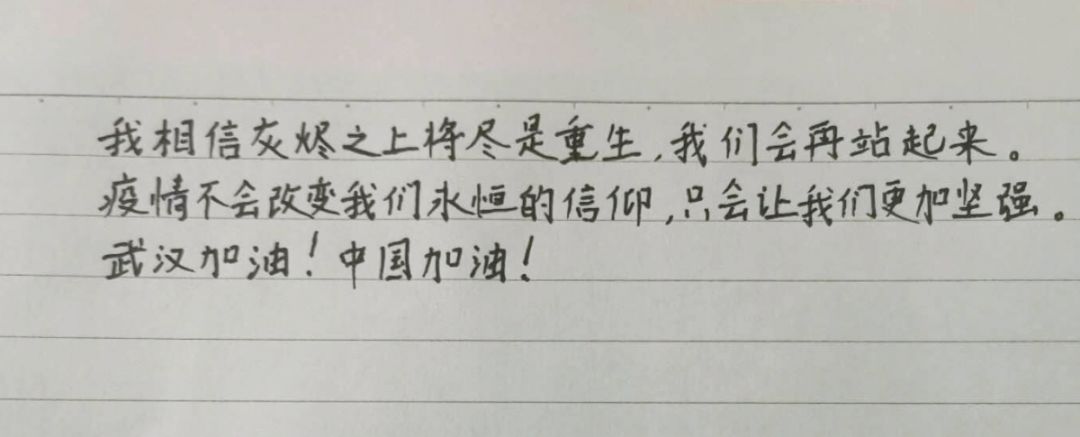 我相信灰烬之上将尽是重生,我们会再站起来。
疫情不会改变我们永恒的信仰,只会让我们更加坚强。
武汉加油!中国加油!